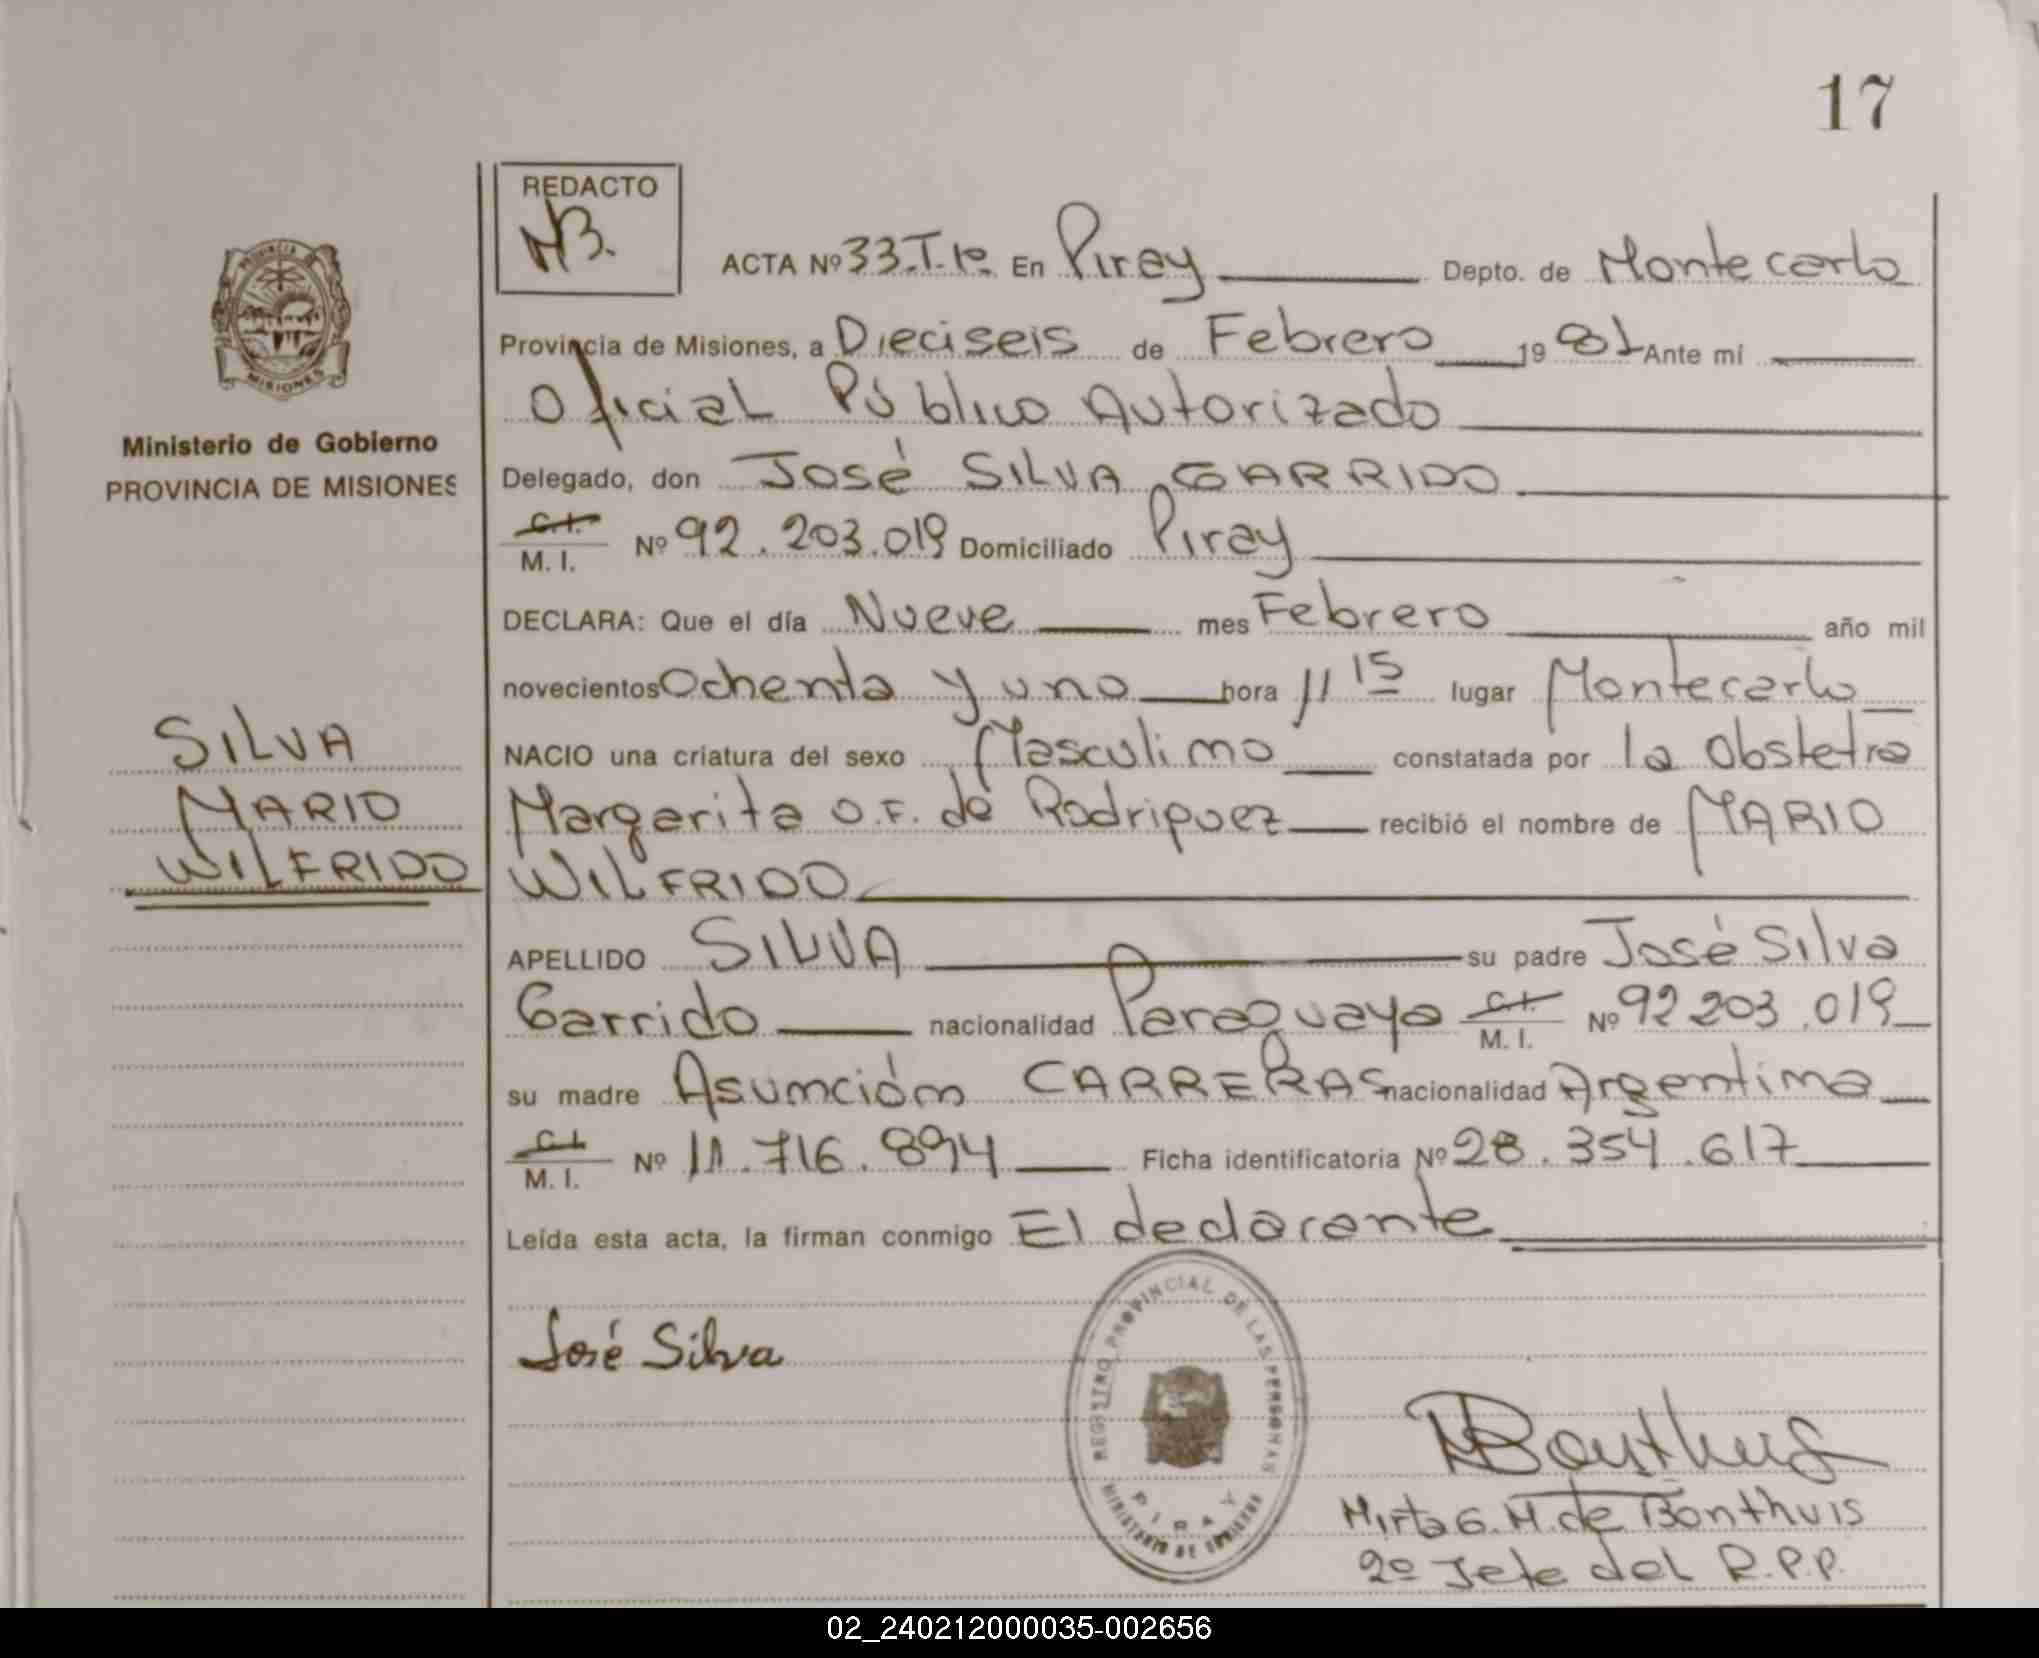 17
REDACTO
ACTA Nº 33.T.1º. En Piray Depto. de Montecarlo
Provincia de Misiones, a Dieciseis de Febrero 1981 Ante mí
Oficial Público Autorizado
Delegado, don José SILVA GARRIDO
C.I.
M. I. Nº 92.203.019 Domiciliado Piray
DECLARA: Que el día Nueve mes Febrero año mil
novecientos Ochenta y uno hora 11 15 lugar Montecarlo
NACIO una criatura del sexo Masculino constatada por la Obstetra
Margarita O.F. de Rodriguez recibió el nombre de MARIO
WILFRIDO
APELLIDO SILVA su padre José Silva
Garrido nacionalidad Paraguaya C.I. M. I. Nº 92 203.019
su madre Asunción CARRERAS nacionalidad Argentina
C.I.
M. I. Nº 11.716.894 Ficha identificatoria Nº 28.354.617
Leída esta acta, la firman conmigo El declarante
José Silva
Bonthuis
Mirta G. M. de Bonthuis
2º Jefe del R.P.P.
REGISTRO PROVINCIAL DE LAS PERSONAS
PIRAY
MINISTERIO DE GOBIERNO
PROVINCIA DE
MISIONES
Ministerio de Gobierno
PROVINCIA DE MISIONES
SILVA
MARIO
WILFRIDO
02_240212000035-002656